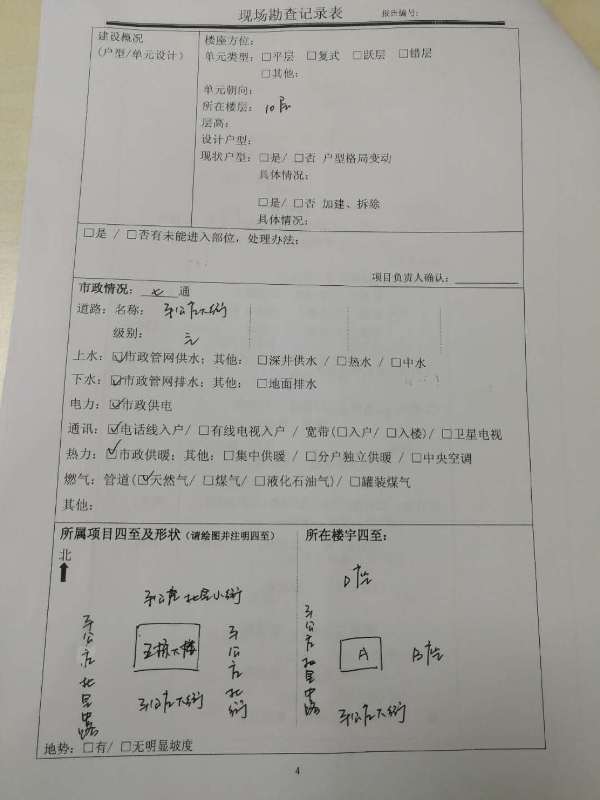 现场勘查记录表
报告编号:
建设概况
(户型/单元设计)
楼座方位:
单元类型: □平层 □复式 □跃层 □错层
□其他:
单元朝向:
所在楼层: 10层
层高:
设计户型:
现状户型: □是/ □否 户型格局变动
具体情况:
□是/ □否 加建、拆除
具体情况:
□是 / □否有未能进入部位, 处理办法:
项目负责人确认:
市政情况: 七 通
道路: 名称:
级别:
上水: ☑市政管网供水; 其他: □深井供水 / □热水 / □中水
下水: ☑市政管网排水; 其他: □地面排水
电力: ☑市政供电
通讯: ☑电话线入户/ □有线电视入户 / 宽带(□入户/ □入楼)/ □卫星电视
热力: ☑市政供暖; 其他: □集中供暖 / □分户独立供暖 / □中央空调
燃气: 管道(☑天然气/ □煤气/ □液化石油气)/ □罐装煤气
其他:
所属项目四至及形状(请绘图并注明四至)
所在楼宇四至:
北
D座
A
B座
地势: □有/ □无明显坡度
4